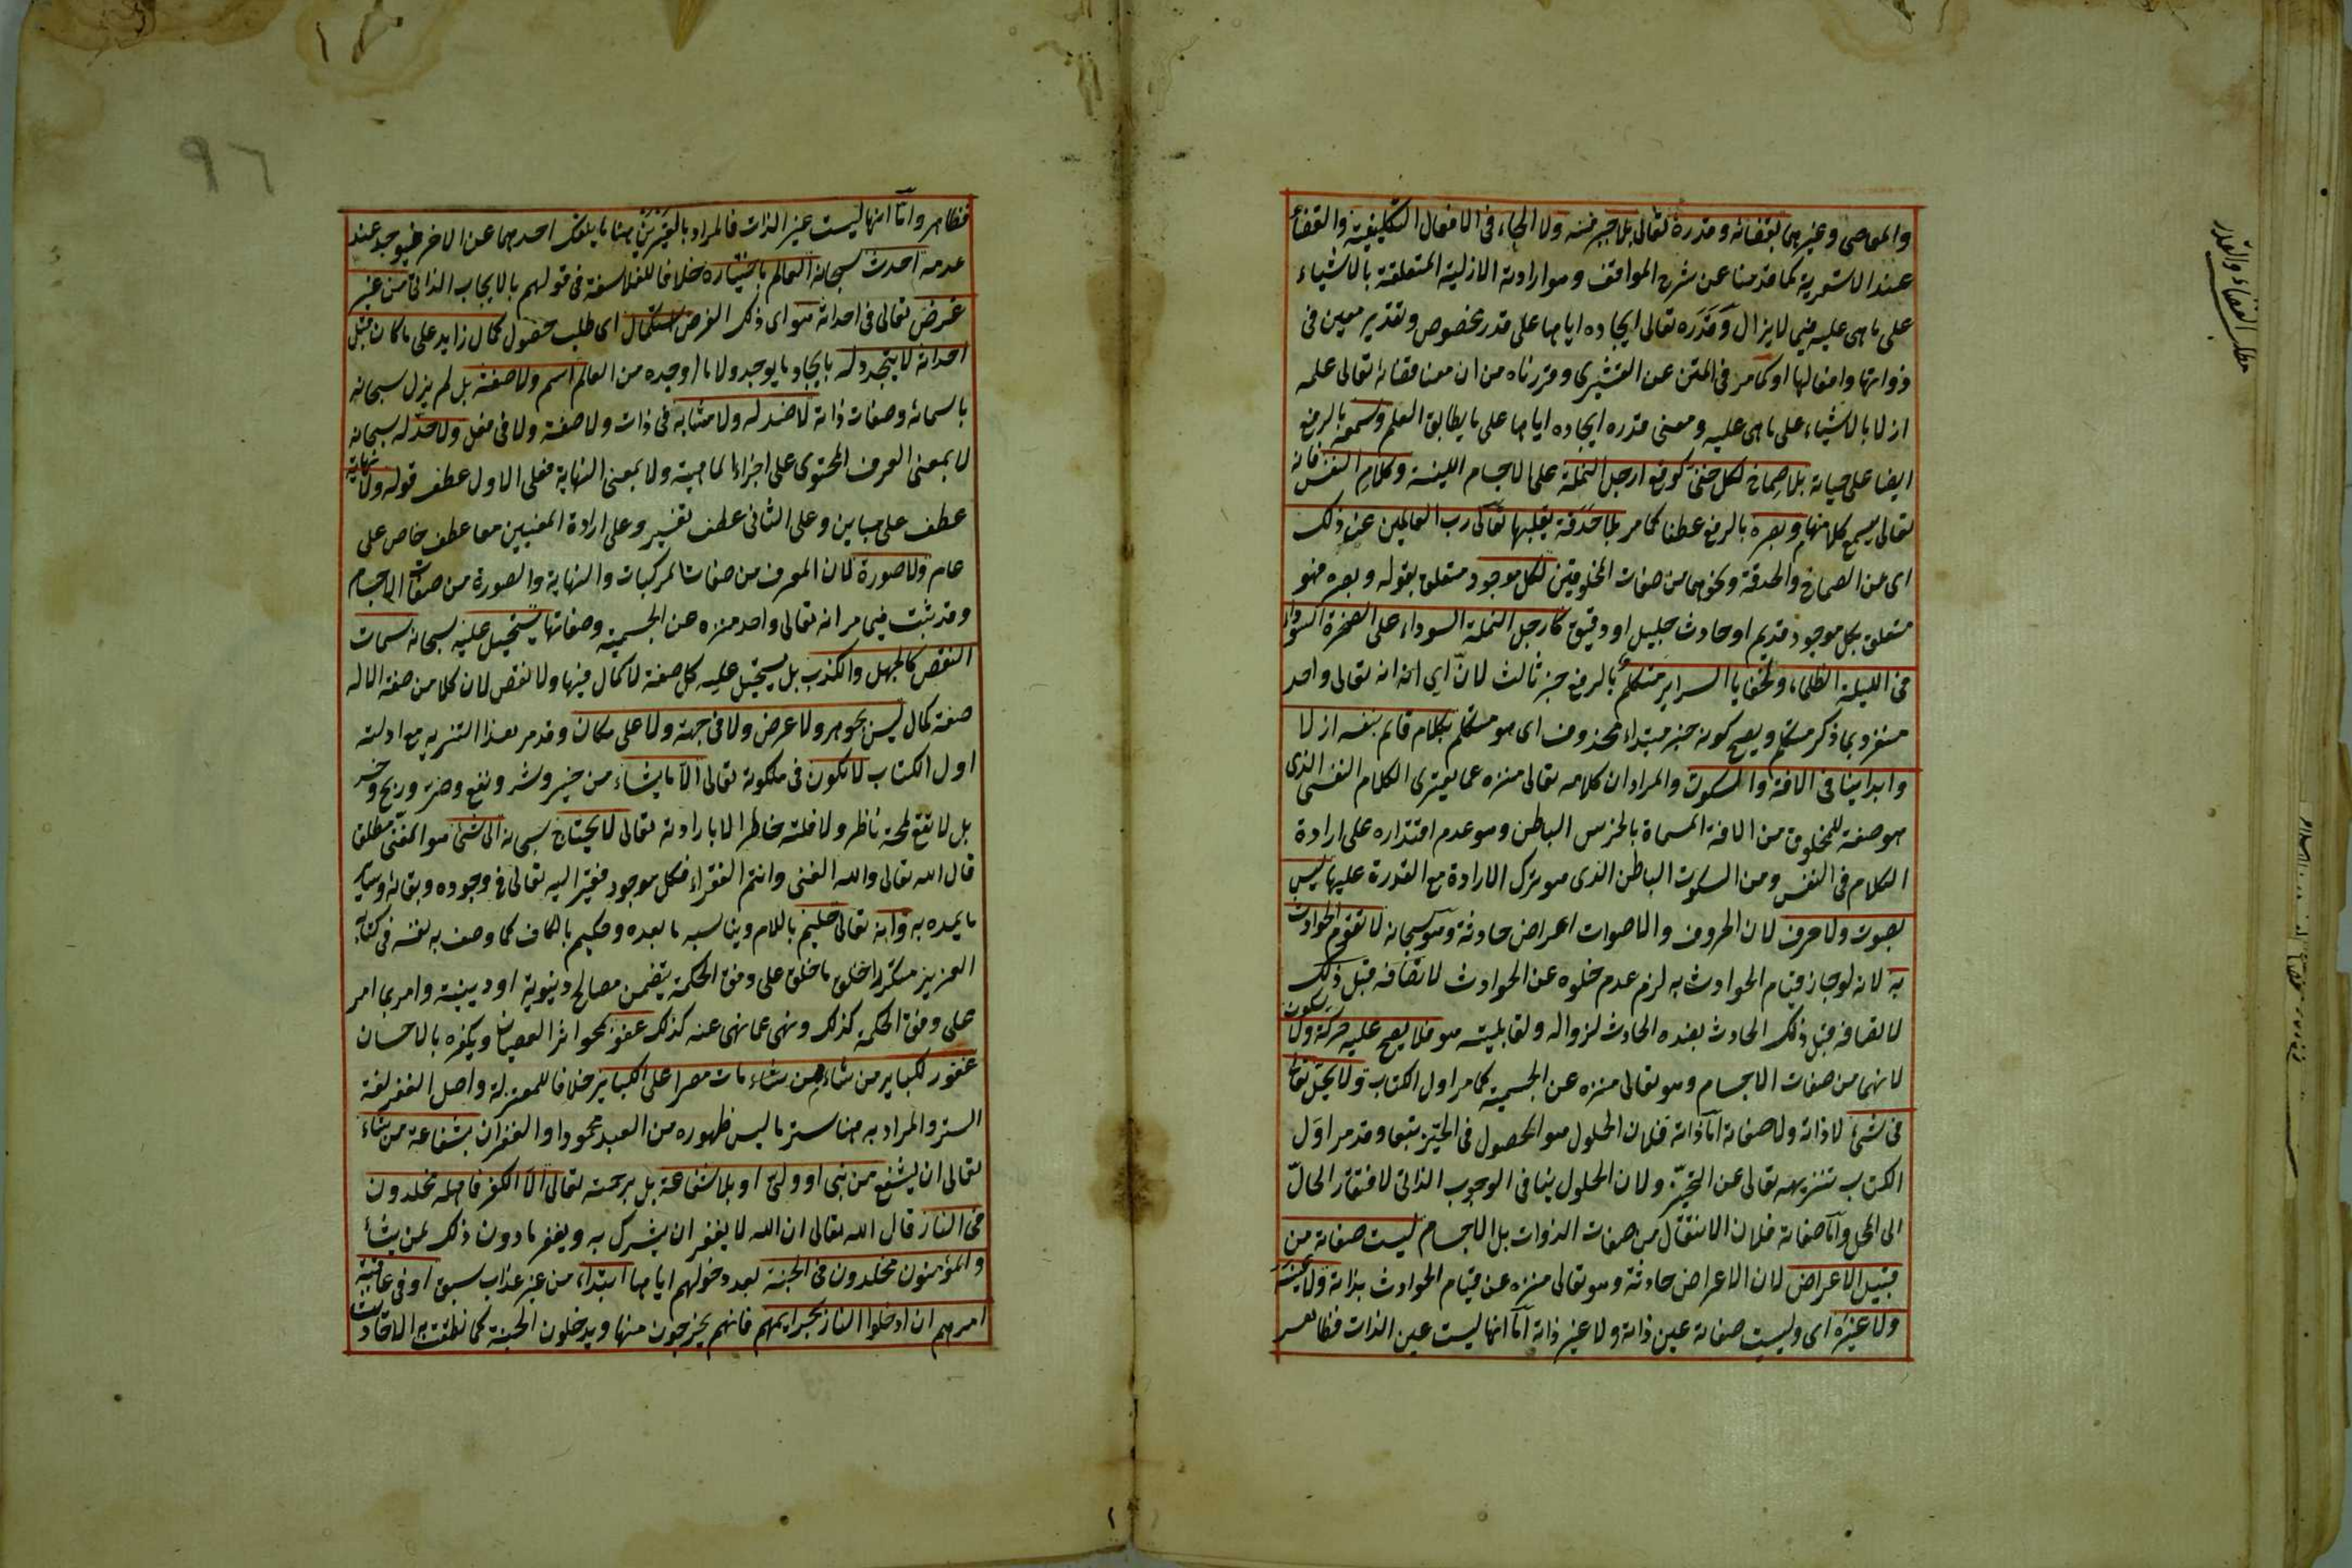 والمعاصى وغيرهما بقضائه وقدره تعالى بلا جبر منه ولا الجاء فى الافعال التكليفية والقضاء
عند الاشعرية كما قدمنا عن شرح المواقف وهو ارادته الازلية المتعلقة بالاشياء
على ما هى عليه فيما لا يزال وقدره تعالى ايجاده اياها على قدر مخصوص وتقدير معين فى
ذواتها وافعالها او كما مر فى المتن عن القشيرى وقررناه من ان معنا قضائه تعالى علمه
ازلا بالاشياء على ما هى عليه ومعنى قدره ايجاده اياها على ما يطابق العلم وسمعه بالرفع
ايضا على حياته بلا صماخ لكل خفى كوقع ارجل النملة على الاجسام اللينة وكلام النفس فانه
تعالى يسمع كلا منهما وبصره بالرفع عطفا كما مر بلا حدقة يقلبها تعالى رب العالمين عن ذلك
اى عن الصماخ والحدقة ونحوهما من صفات المخلوقين لكل موجود متعلق بقوله وبصره فهو
متعلق بكل موجود قديم او حادث جليل او دقيق كارجل النملة السوداء على الصخرة السوداء
فى الليلة الظلماء ولخفايا السراير متكلم بالرفع خبر ثالث لان اى انه تعالى واحد
منفرد بما ذكر متكلم ويصح كونه خبر مبتداء محذوف اى هو متكلم بكلام قائم بنفسه ازلا
وابدا ينافى الافة والسكوت والمراد ان كلامه تعالى منزه عما يعترى الكلام النفسى الذى
هو صفة للمخلوق من الافة المسماة بالخرس الباطن وهو عدم اقتداره على ارادة
الكلام فى النفس ومن السكوت الباطن الذى هو ترك الارادة مع القدرة عليها ليس
بصوت ولا حرف لان الحروف والاصوات اعراض حادثة وهو سبحانه لا تقوم الحوادث
به لانه لو جاز قيام الحوادث به لزم عدم خلوه عن الحوادث لاتصافه قبل ذلك
لاتصافه قبل ذلك الحادث بضده الحادث لزواله ولقابليته هو فلا يصح عليه حركة ولا سكون
لانهما من صفات الاجسام وهو تعالى منزه عن الجسمية كما مر اول الكتاب ولا يحل تعالى
فى شىء لا ذاته ولا صفاته اما ذاته فلان الحلول هو الحصول فى الحيز تبعا وقد مر اول
الكتاب تنزيهه تعالى عن التحيز ولان الحلول ينافى الوجوب الذاتى لافتقار الحال
الى المحل واما صفاته فلان الانتقال من صفات الذوات بل الاجسام ليست صفاته من
قبيل الاعراض لان الاعراض حادثة وهو تعالى منزه عن قيام الحوادث بذاته ولا عينه
ولا غيره اى وليست صفاته عين ذاته ولا غير ذاته اما انها ليست عين الذات فظاهر
مطلب القضاء والقدر
٩٦
فظاهر واما انها ليست غير الذات فالمراد بالغيرين هنا ما ينفك احدهما عن الاخر فيوجد عند
عدمه احدث سبحانه العالم باختياره خلافا للفلاسفة فى قولهم بالايجاب الذاتى من غير
غرض تعالى فى احداثه هو اى ذلك الغرض استكمال اى طلب حصول كمال زايد على ما كان قبل
احداثه لا يتجدد له بايجاد ما يوجد ولا ما اوجده من العالم اسم ولا صفة بل لم يزل سبحانه
باسمائه وصفات ذاته لا ضد له ولا مشابه فى ذات ولا صفة ولا فى فعل ولا حد له سبحانه
لا بمعنى المعرف المحتوى على اجزاء الماهية ولا بمعنى النهاية فعلى الاول عطف قوله ولا نهاية
عطف على مباين وعلى الثانى عطف تفسير وعلى ارادة المعنيين معا عطف خاص على
عام ولا صورة لان المعرف من صفات المركبات والنهاية والصورة من صفات الاجسام
وقد ثبت فيما مر انه تعالى واحد منزه عن الجسمية وصفاتها يستحيل عليه سبحانه سمات
النقص كالجهل والكذب بل يستحيل عليه كل صفة لا كمال فيها ولا نقص لان كلا من صفة الاله
صفة كمال ليس بجوهر ولا عرض ولا فى جهة ولا على مكان وقد مر هذا التنزيه مع ادلته
اول الكتاب لا يكون فى ملكوته تعالى الا ما يشاء من خير وشر ونفع وضر وربح وخسر
بل لا تقع لمحة ناظر ولا فلتة خاطر الا بارادته تعالى لا يحتاج سبحانه الى شئ هو الغنى مطلق
قال الله تعالى والله الغنى وانتم الفقراء فكل موجود فقير اليه تعالى فى وجوده وبقائه وساير
ما يمده به وانه تعالى حليم باللام ويناسبه ما بعده وحكيم بالكاف كما وصف به نفسه فى كتابه
العزيز متكررا خلق ما خلق على وفق الحكمة يتضمن مصالح دنيوية او دينية وامر بما امر
على وفق الحكمة كذلك ونهى عما نهى عنه كذلك عفو يمحوا اثر العصيان ويكفره بالاحسان
غفور لكباير من شاء ممن شاء مات مصرا على الكباير خلافا للمعتزلة واصل الغفر لغة
الستر والمراد به هنا ستر ما ليس ظهوره من العبد محمودا والغفران بشفاعة من شاء
تعالى ان يشفع من نبى او ولى او بلا شفاعة بل برحمته تعالى الا الكفر فاهله مخلدون
فى النار قال الله تعالى ان الله لا يغفر ان يشرك به ويغفر ما دون ذلك لمن يشاء
والمؤمنون مخلدون فى الجنة بعد دخولهم اياها ابتداء من غير عذاب سبق او فى عاقبة
امرهم ان ادخلوا النار بجرايمهم فانهم يخرجون منها ويدخلون الجنة كما نطقت به الاحاديث